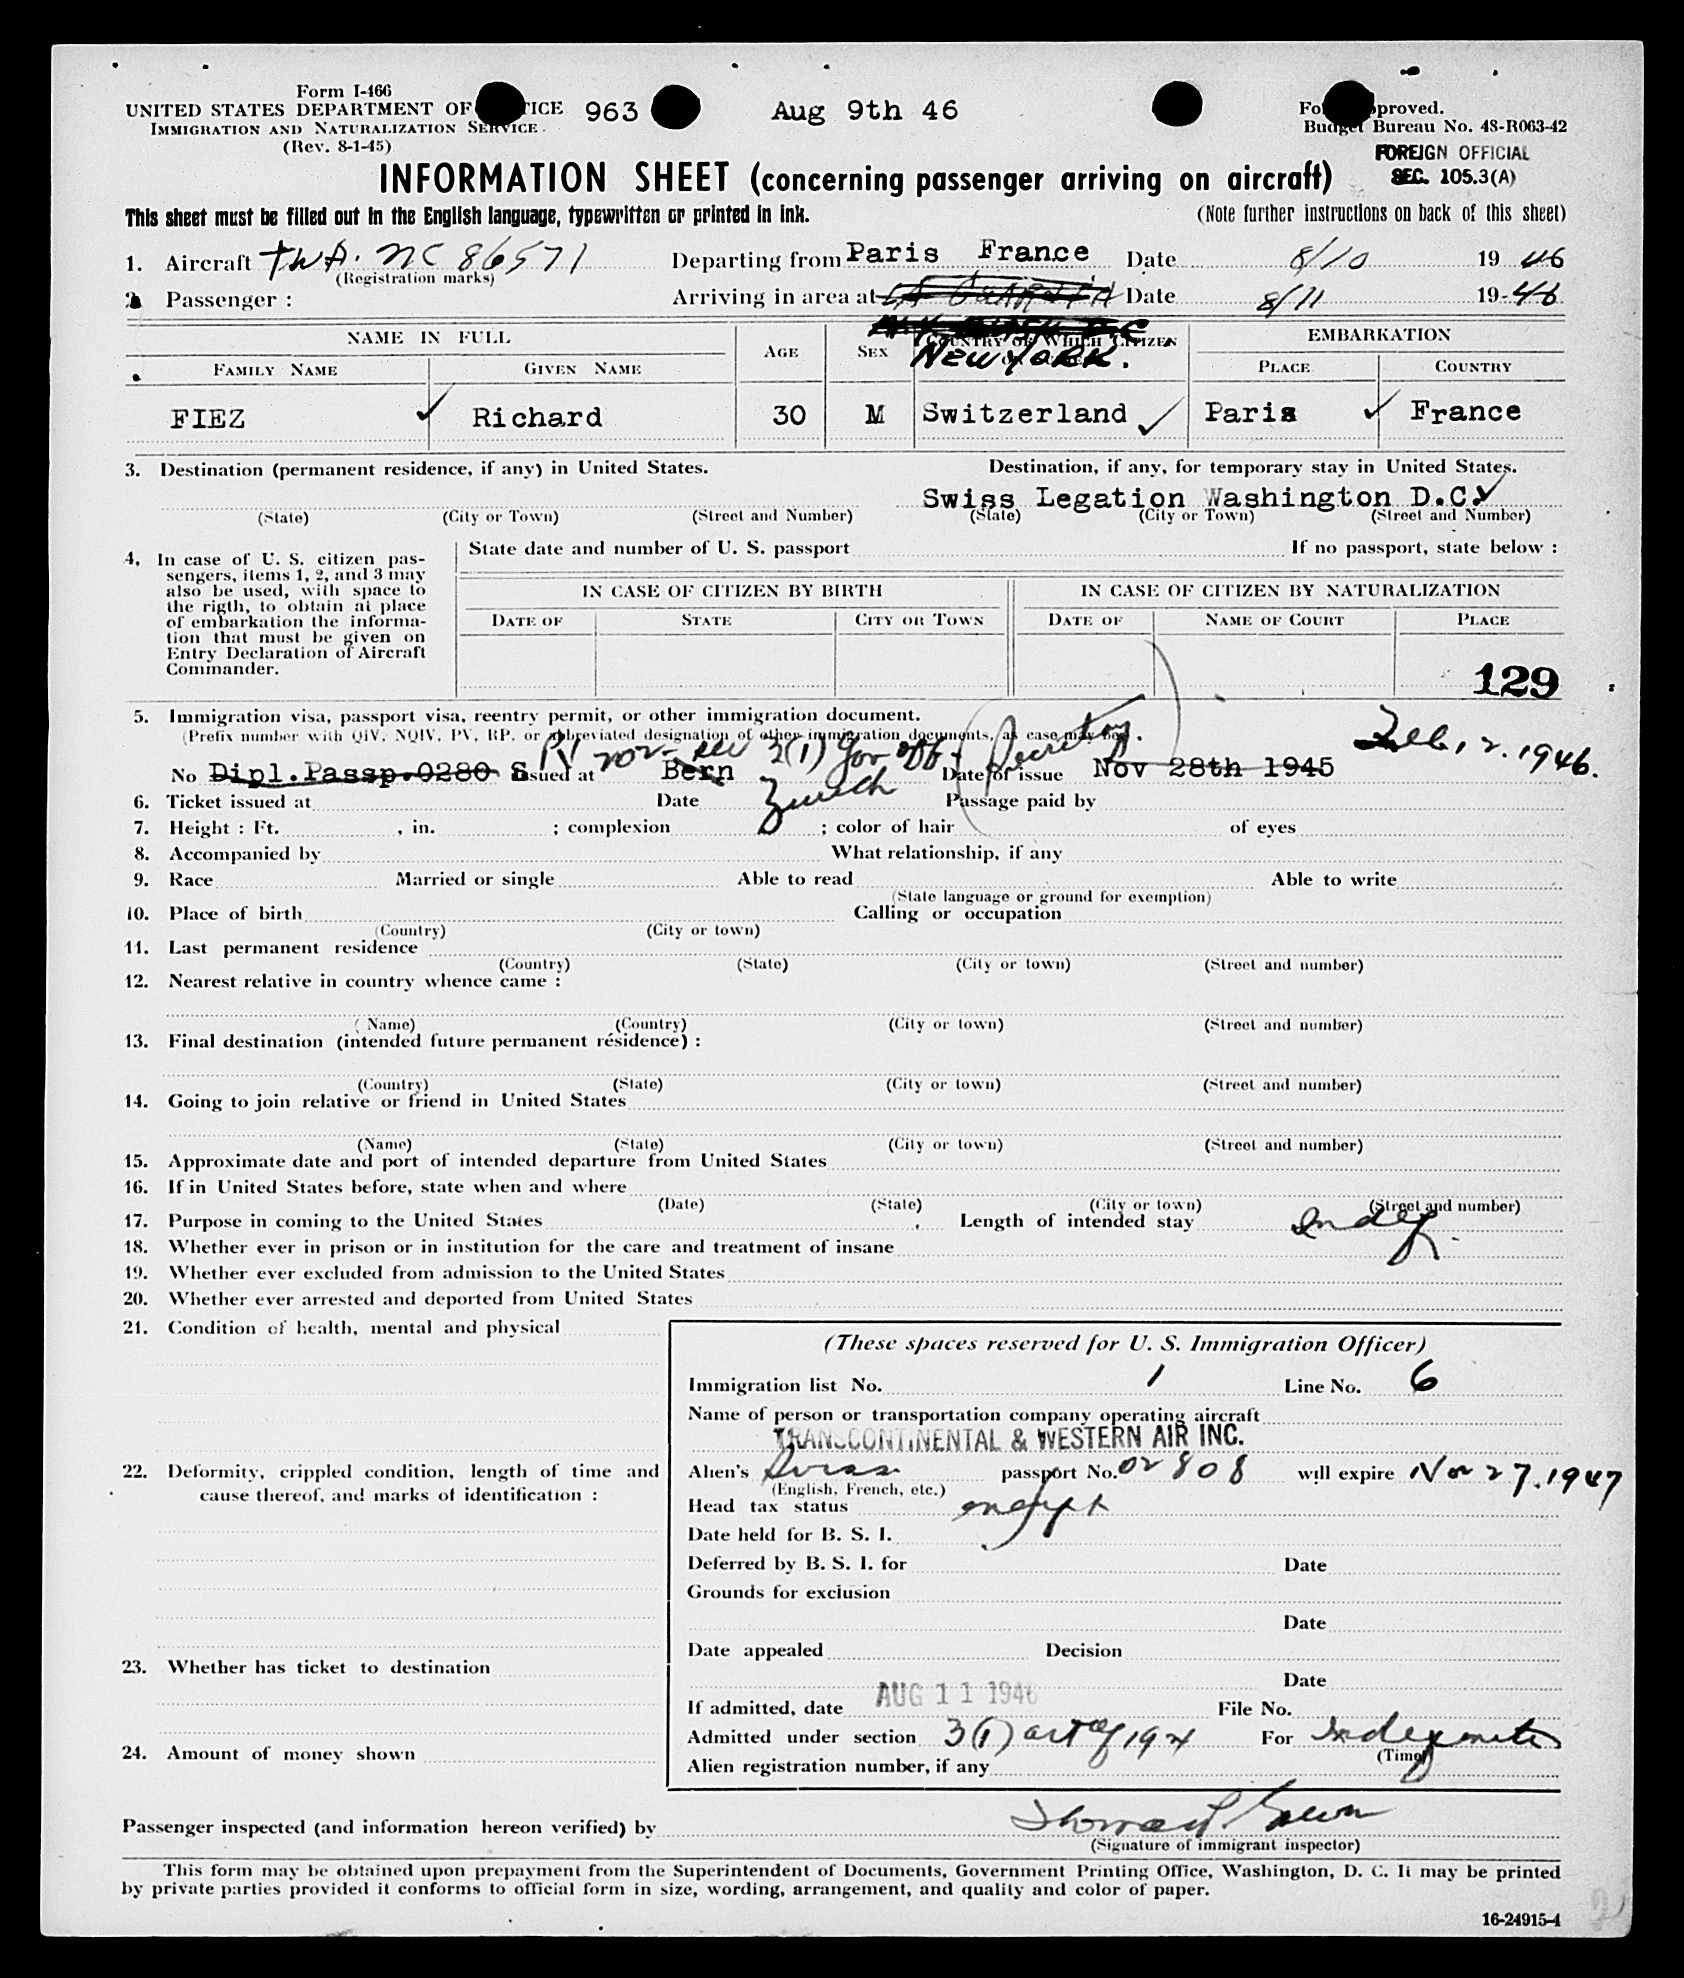 Form I-466
UNITED STATES DEPARTMENT OF ICE 963 Aug 9th 46 Form Approved.
IMMIGRATION AND NATURALIZATION SERVICE Budget Bureau No. 43-R063-42
(Rev. 8-1-45) FOREIGN OFFICIAL
INFORMATION SHEET (concerning passenger arriving on aircraft) SEC. 105.3(A)
This sheet must be filled out in the English language, typewritten or printed in ink. (Note further instructions on back of this sheet)
1. Aircraft TWA. NC 86571 Departing from Paris France Date 8/10 19 46
(Registration marks)
2. Passenger : Arriving in area at LA GUARDIA Date 8/11 19 46
NAME IN FULL AGE SEX COUNTRY OF WHICH CITIZEN EMBARKATION
NEW YORK.
FAMILY NAME GIVEN NAME PLACE COUNTRY
FIEZ Richard 30 M Switzerland Paris France
3. Destination (permanent residence, if any) in United States. Destination, if any, for temporary stay in United States.
Swiss Legation Washington D.C.
(State) (City or Town) (Street and Number) (State) (City or Town) (Street and Number)
4. In case of U. S. citizen pas-
sengers, items 1, 2, and 3 may
also be used, with space to
the rigth, to obtain at place
of embarkation the informa-
tion that must be given on
Entry Declaration of Aircraft
Commander.
State date and number of U. S. passport If no passport, state below :
IN CASE OF CITIZEN BY BIRTH IN CASE OF CITIZEN BY NATURALIZATION
DATE OF STATE CITY OR TOWN DATE OF NAME OF COURT PLACE
129
5. Immigration visa, passport visa, reentry permit, or other immigration document.
(Prefix number with QIV, NQIV, PV, RP, or abbreviated designation of other immigration documents, as case may be).
PV 202 - sec 3(1) Gov off - Secretary Feb. 12. 1946.
No Dipl.Passp.0280 S Issued at Bern Date of issue Nov 28th 1945
Zurich
6. Ticket issued at Date Passage paid by
7. Height : Ft. , in. ; complexion ; color of hair of eyes
8. Accompanied by What relationship, if any
9. Race Married or single Able to read Able to write
(State language or ground for exemption)
10. Place of birth Calling or occupation
(Country) (City or town)
11. Last permanent residence
(Country) (State) (City or town) (Street and number)
12. Nearest relative in country whence came :
(Name) (Country) (City or town) (Street and number)
13. Final destination (intended future permanent résidence) :
(Country) (State) (City or town) (Street and number)
14. Going to join relative or friend in United States
(Name) (State) (City or town) (Street and number)
15. Approximate date and port of intended departure from United States
16. If in United States before, state when and where
(Date) (State) (City or town) (Street and number)
17. Purpose in coming to the United States Length of intended stay Indef.
18. Whether ever in prison or in institution for the care and treatment of insane
19. Whether ever excluded from admission to the United States
20. Whether ever arrested and deported from United States
21. Condition of health, mental and physical
22. Deformity, crippled condition, length of time and
cause thereof, and marks of identification :
23. Whether has ticket to destination
24. Amount of money shown
(These spaces reserved for U. S. Immigration Officer)
Immigration list No. 1 Line No. 6
Name of person or transportation company operating aircraft
TRANSCONTINENTAL & WESTERN AIR INC.
Alien's Swiss passport No. 02808 will expire Nov 27. 1947
(English, French, etc.)
Head tax status exempt
Date held for B. S. I.
Deferred by B. S. I. for Date
Grounds for exclusion
Date
Date appealed Decision
Date
If admitted, date AUG 11 1946 File No.
Admitted under section 3(1) act of 1924 For Indefinite
(Time)
Alien registration number, if any
Passenger inspected (and information hereon verified) by
(Signature of immigrant inspector)
This form may be obtained upon prepayment from the Superintendent of Documents, Government Printing Office, Washington, D. C. It may be printed
by private parties provided it conforms to official form in size, wording, arrangement, and quality and color of paper.
16-24915-4